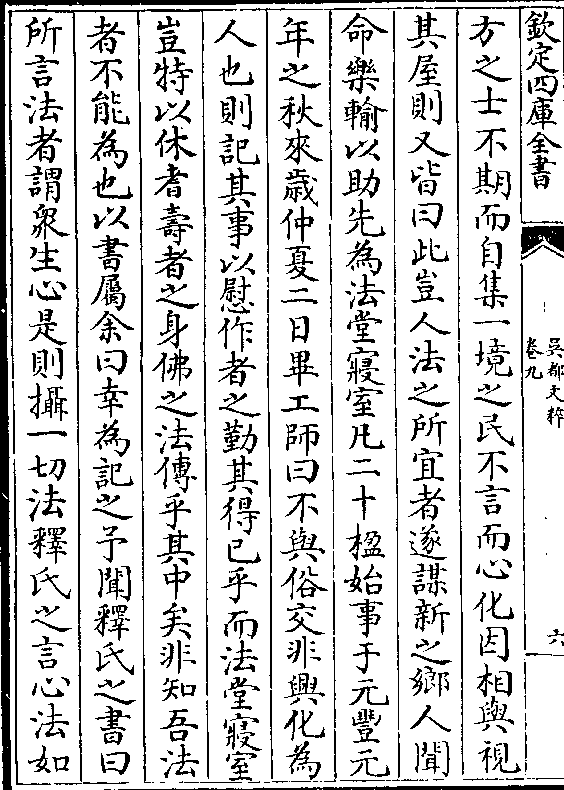 欽定四庫全書
吳都文粹
卷九
六
方之士不期而自集一境之民不言而心化因相與視
其屋則又皆曰此豈人法之所宜者遂謀新之鄉人聞
命樂輸以助先為法堂寢室凡二十楹始事于元豐元
年之秋來歳仲夏二日畢工師曰不與俗交非興化為
人也則記其事以慰作者之勤其得已乎而法堂寢室
豈特以休耆壽者之身佛之法傳乎其中矣非知吾法
者不能為也以書屬余曰幸為記之予聞釋氏之書曰
所言法者謂衆生心是則攝一切法釋氏之言心法如